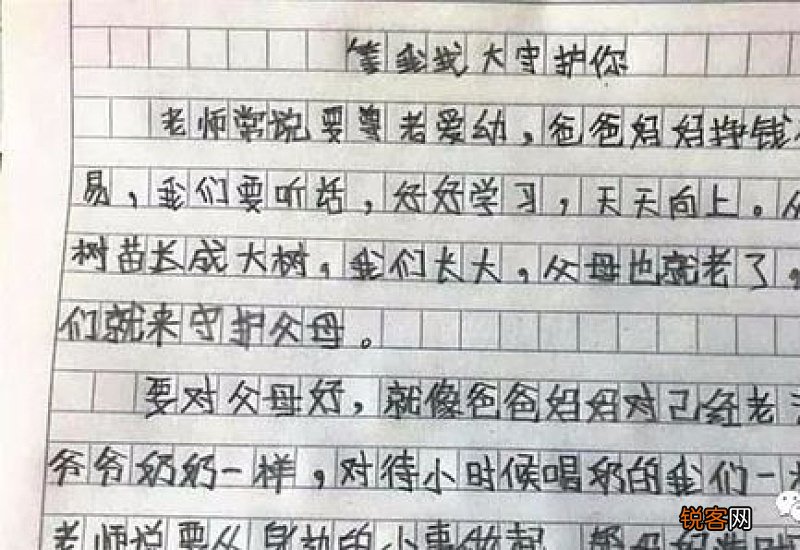 等我大守护你
老师常说要尊老爱幼，爸爸妈妈挣钱
易，我们要听话，好好学习，天天向上。
树苗长成大树，我们长大，父母也就老了，
们就来守护父母。
要对父母好，就像爸爸妈妈对己经老
爷爷奶奶一样，对待小时候唱奶的我们一
老师说要从身的小事做起，帮
锐客网